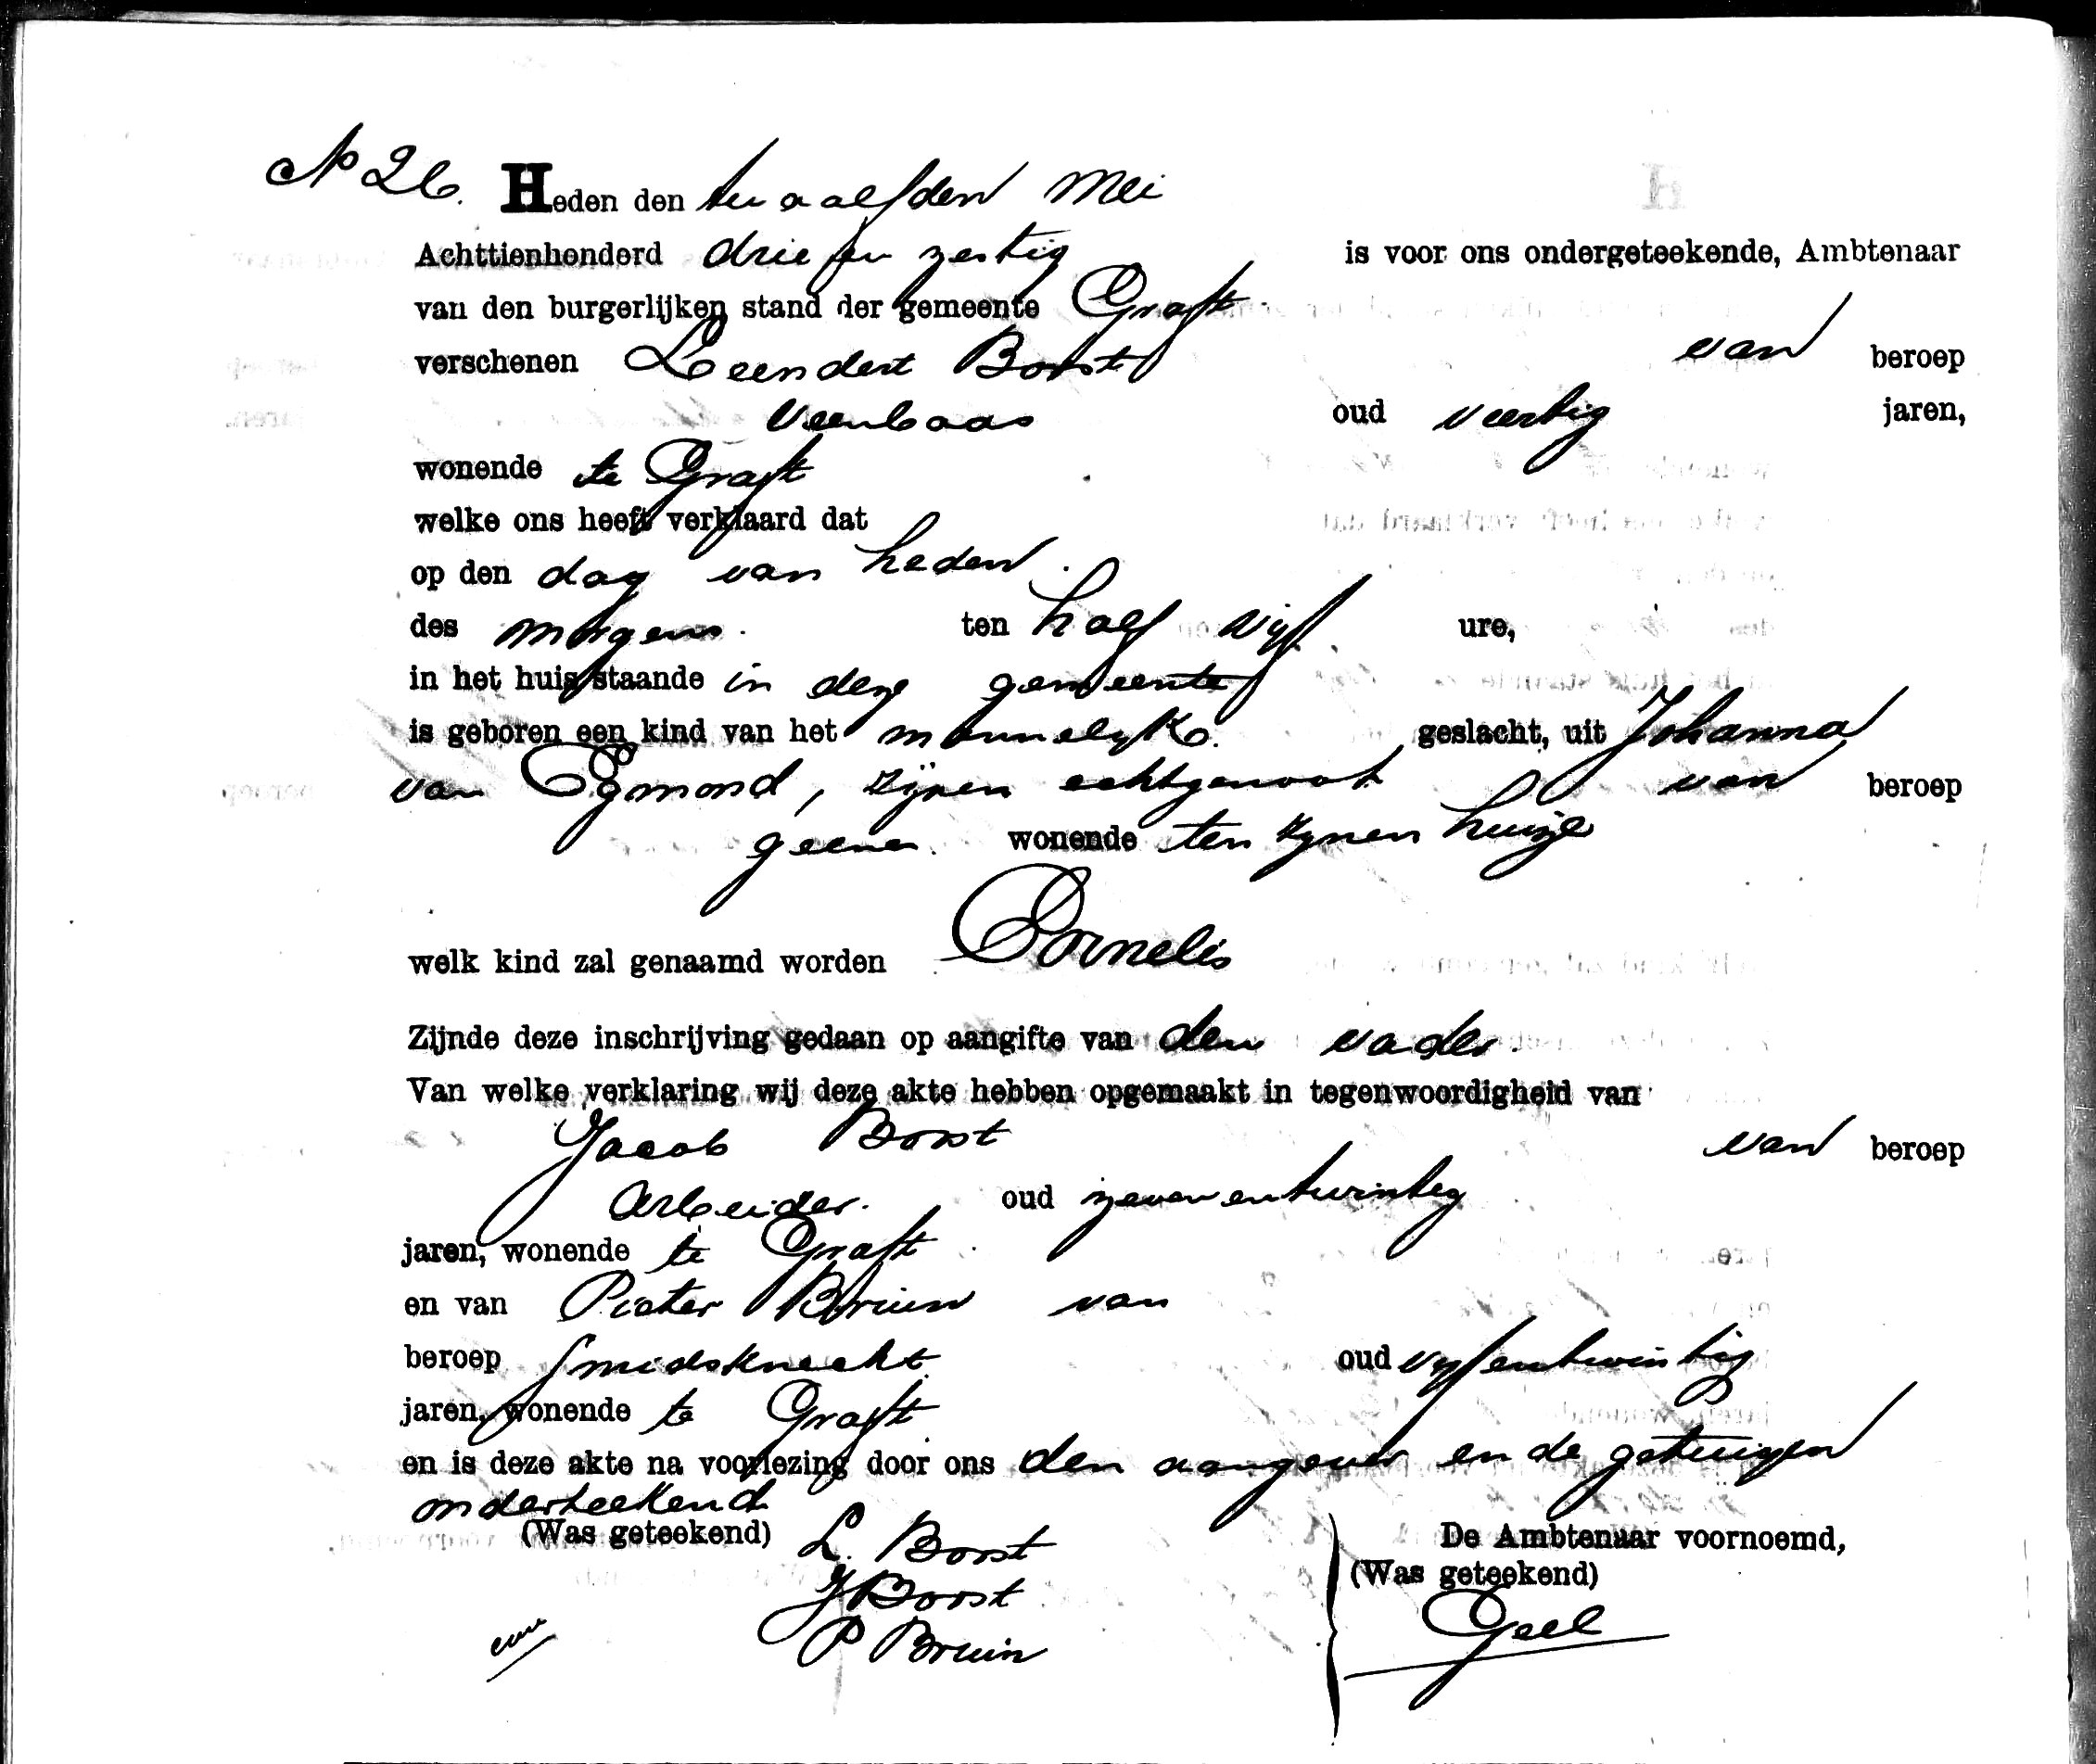 No 26. Heden den twaalfden Mei
Achttienhonderd drie en zestig is voor ons ondergeteekende, Ambtenaar
van den burgerlijken stand der gemeente Graft
verschenen Leendert Borst van beroep
Veenbaas oud veertig jaren,
wonende te Graft
welke ons heeft verklaard dat
op den dag van heden.
des morgens. ten half vijf ure,
in het huis staande in deze gemeente
is geboren een kind van het mannelijk. geslacht, uit Johanna
van Egmond, zijnen echtgenoot van beroep
geene. wonende ten zijnen huize
welk kind zal genaamd worden Cornelis
Zijnde deze inschrijving gedaan op aangifte van den vader.
Van welke verklaring wij deze akte hebben opgemaakt in tegenwoordigheid van
Jacob Borst van beroep
Arbeider. oud zevenentwintig
jaren, wonende te Graft
en van Pieter Bruin van
beroep smidsknecht oud vijfentwintig
jaren, wonende te Graft
en is deze akte na voorlezing door ons den aangever en de getuigen
onderteekend
(Was geteekend) L. Borst De Ambtenaar voornoemd,
J Borst (Was geteekend)
P Bruin Geel